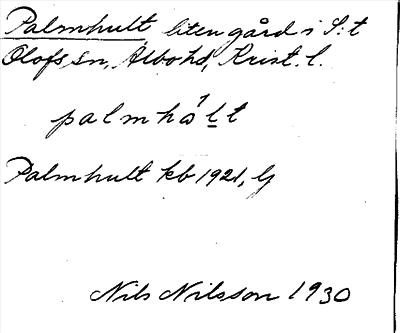 Palmhult liten gård i S:t
Olofs sn, Albo hd, Krist. l.
palmhὼl̲t
Palmhult kb 1921, Lj
Nils Nilsson 1930